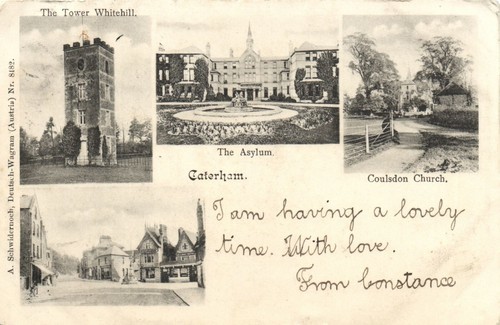 The Tower Whitehill.
A. Schwidernoch, Deutsch-Wagram (Austria) Nr. 8182.
The Asylum.
Coulsdon Church.
Caterham.
I am having a lovely
time. With love.
From Constance